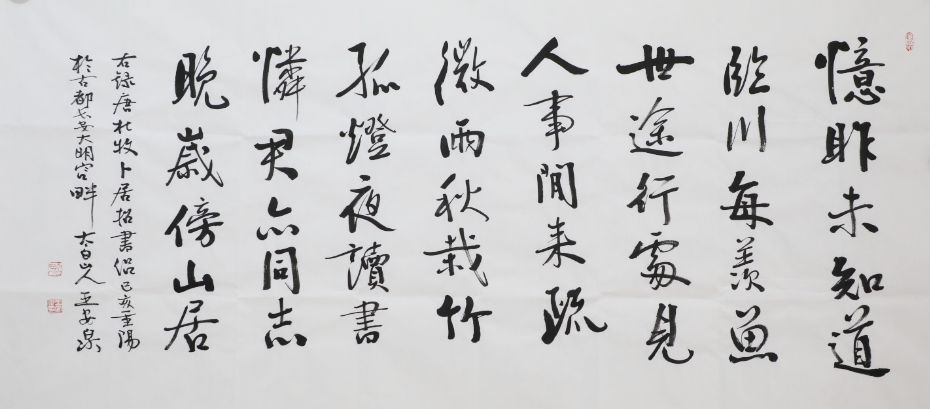 憶昨未知道
臨川每羨魚
世途行處見
人事閒来疏
微雨秋栽竹
孤燈夜讀書
憐君亦同志
晚歲傍山居
右録唐杜牧卜居招書侶己亥重陽
於古都长安大明宮畔 太白山人王安泉